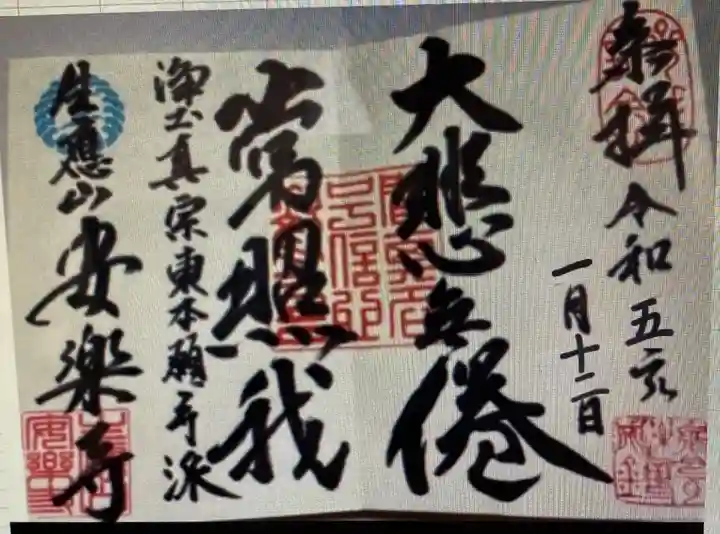 奉拝 令和五年
一月十二日
大悲無倦
常照我
浄土真宗東本願寺派
生應山 安楽寺